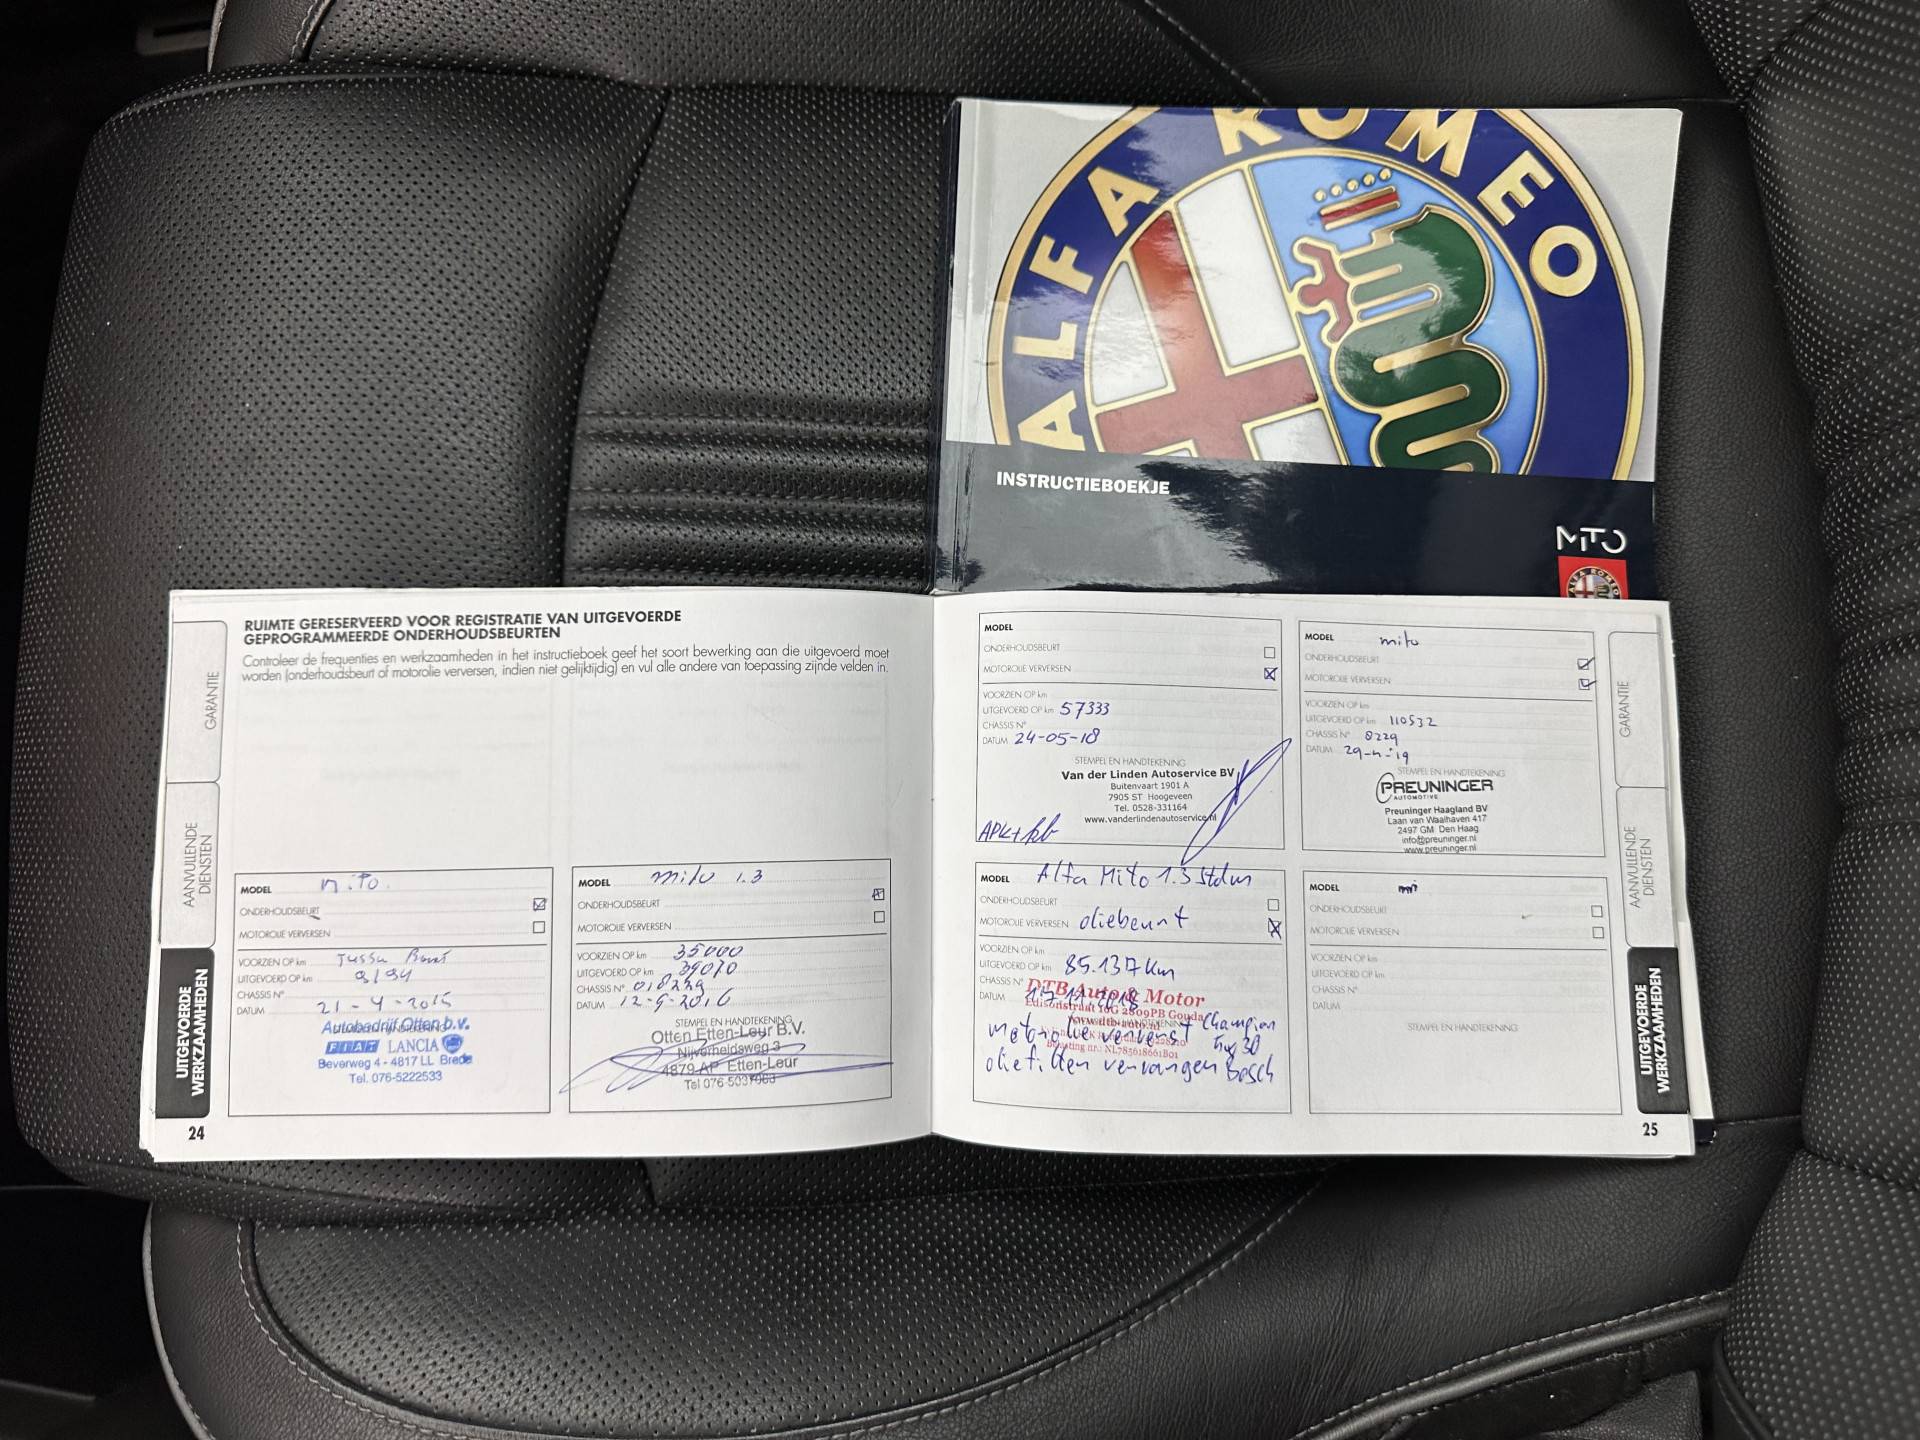 ALFA ROMEO
INSTRUCTIEBOEKJE
MiTO
ALFA ROMEO
RUIMTE GERESERVEERD VOOR REGISTRATIE VAN UITGEVOERDE
GEPROGRAMMEERDE ONDERHOUDSBEURTEN
Controleer de frequenties en werkzaamheden in het instructieboek geef het soort bewerking aan die uitgevoerd moet
worden (onderhoudsbeurt of motorolie verversen, indien niet gelijktijdig) en vul alle andere van toepassing zijnde velden in.
GARANTIE
AANVULLENDE
DIENSTEN
UITGEVOERDE
WERKZAAMHEDEN
MODEL mito.
ONDERHOUDSBEURT
MOTOROLIE VERVERSEN
VOORZIEN OP km
UITGEVOERD OP km
CHASSIS N°
DATUM 21-4-2015
Autobedrijf Otten b.v.
FIAT LANCIA
Beverweg 4 - 4817 LL Breda
Tel. 076-5222533
MODEL mito 1.3
ONDERHOUDSBEURT
MOTOROLIE VERVERSEN
VOORZIEN OP km 35000
UITGEVOERD OP km 39070
CHASSIS N° 018229
DATUM 12-9-2016
STEMPEL EN HANDTEKENING
Otten Etten-Leur B.V.
Nijverheidsweg 3
4879 AP Etten-Leur
Tel 076-5037063
24
MODEL
ONDERHOUDSBEURT
MOTOROLIE VERVERSEN
VOORZIEN OP km
UITGEVOERD OP km 57333
CHASSIS N°
DATUM 24-05-18
STEMPEL EN HANDTEKENING
Van der Linden Autoservice BV
Buitenvaart 1901 A
7905 ST Hoogeveen
Tel. 0528-331164
www.vanderlindenautoservice.nl
APK+
MODEL mito
ONDERHOUDSBEURT
MOTOROLIE VERVERSEN
VOORZIEN OP km
UITGEVOERD OP km 110532
CHASSIS N° 8229
DATUM
STEMPEL EN HANDTEKENING
PREUNINGER
AUTOMOTIVE
Preuninger Haagland BV
Laan van Waalhaven 417
2497 GM Den Haag
info@preuninger.nl
www.preuninger.nl
MODEL Alfa Mito 1.3
ONDERHOUDSBEURT
MOTOROLIE VERVERSEN oliebeurt
VOORZIEN OP km
UITGEVOERD OP km 85.137 km
CHASSIS N°
DATUM
DTB Auto & Motor
Edisonstraat 16G 2809PB Gouda
www.dtb-auto.nl
motorolie ververst Champion
5w30
oliefilter vervangen Bosch
MODEL
ONDERHOUDSBEURT
MOTOROLIE VERVERSEN
VOORZIEN OP km
UITGEVOERD OP km
CHASSIS N°
DATUM
STEMPEL EN HANDTEKENING
GARANTIE
AANVULLENDE
DIENSTEN
UITGEVOERDE
WERKZAAMHEDEN
25